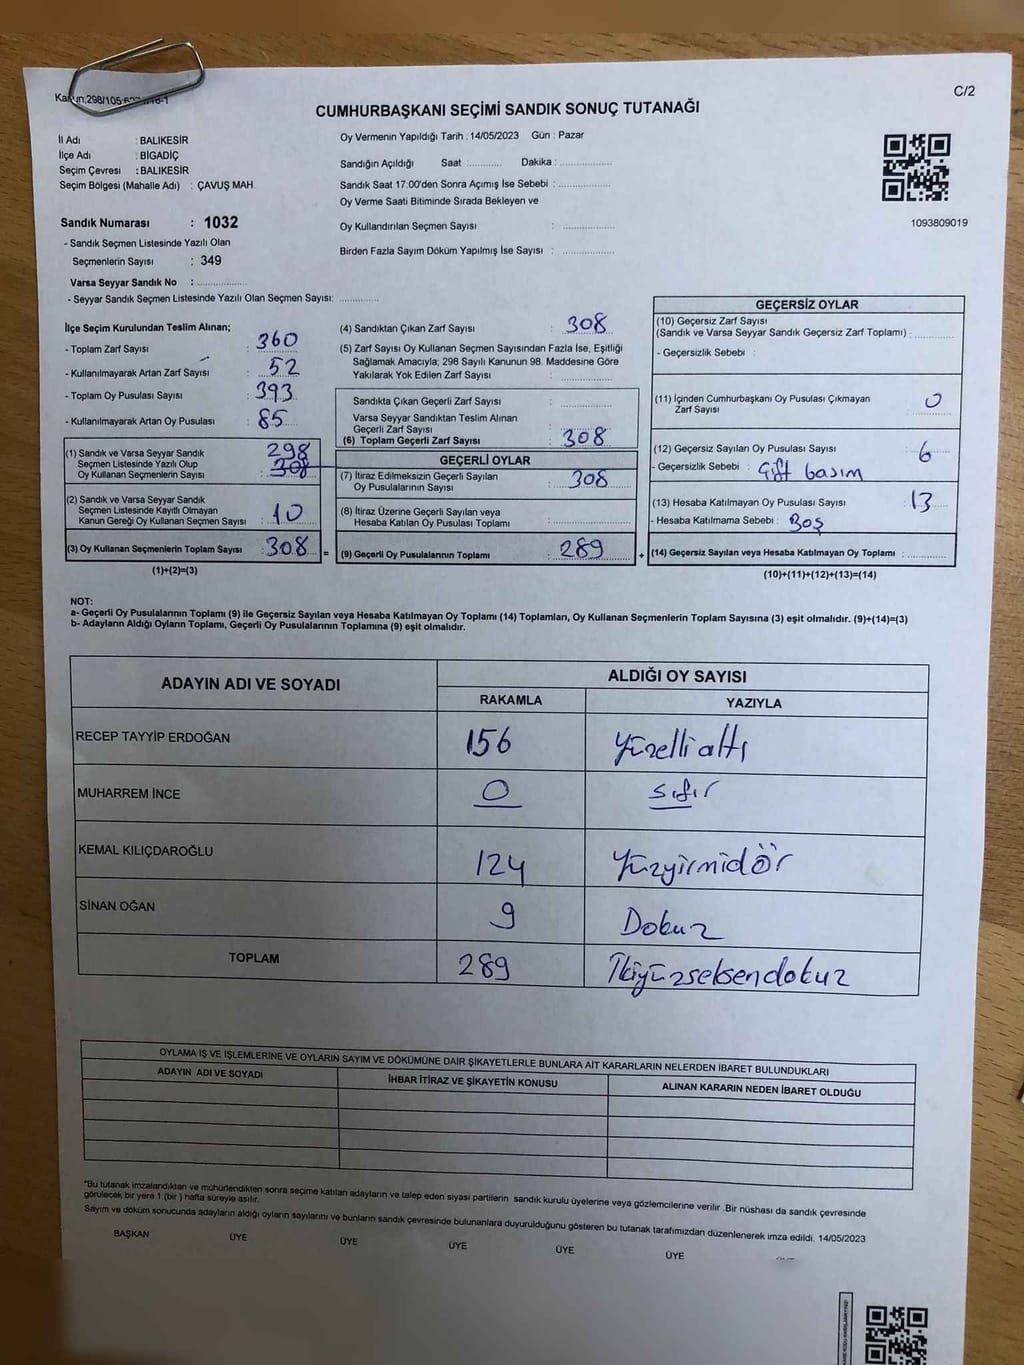 C/2
CUMHURBAŞKANI SEÇİMİ SANDIK SONUÇ TUTANAĞI
İl Adı : BALIKESİR
İlçe Adı : BİGADİÇ
Seçim Çevresi : BALIKESİR
Seçim Bölgesi (Mahalle Adı) : ÇAVUŞ MAH.
Sandık Numarası : 1032
- Sandık Seçmen Listesinde Yazılı Olan
Seçmenlerin Sayısı : 349
Varsa Seyyar Sandık No :
- Seyyar Sandık Seçmen Listesinde Yazılı Olan Seçmen Sayısı:
Oy Vermenin Yapıldığı Tarih : 14/05/2023 Gün : Pazar
Sandığın Açıldığı Saat : Dakika :
Sandık Saat 17:00'den Sonra Açımış İse Sebebi :
Oy Verme Saati Bitiminde Sırada Bekleyen ve
Oy Kullandırılan Seçmen Sayısı :
Birden Fazla Sayım Döküm Yapılmış İse Sayısı :
1093809019
İlçe Seçim Kurulundan Teslim Alınan;
- Toplam Zarf Sayısı : 360
- Kullanılmayarak Artan Zarf Sayısı : 52
- Toplam Oy Pusulası Sayısı : 393
- Kullanılmayarak Artan Oy Pusulası : 85
(1) Sandık ve Varsa Seyyar Sandık 298
Seçmen Listesinde Yazılı Olup
Oy Kullanan Seçmenlerin Sayısı : 308
(2) Sandık ve Varsa Seyyar Sandık
Seçmen Listesinde Kayıtlı Olmayan
Kanun Gereği Oy Kullanan Seçmen Sayısı : 10
(3) Oy Kullanan Seçmenlerin Toplam Sayısı : 308 =
(1)+(2)=(3)
(4) Sandıktan Çıkan Zarf Sayısı : 308
(5) Zarf Sayısı Oy Kullanan Seçmen Sayısından Fazla İse, Eşitliği
Sağlamak Amacıyla; 298 Sayılı Kanunun 98. Maddesine Göre
Yakılarak Yok Edilen Zarf Sayısı :
Sandıkta Çıkan Geçerli Zarf Sayısı :
Varsa Seyyar Sandıktan Teslim Alınan
Geçerli Zarf Sayısı :
(6) Toplam Geçerli Zarf Sayısı : 308
GEÇERLİ OYLAR
(7) İtiraz Edilmeksizin Geçerli Sayılan
Oy Pusulalarının Sayısı : 308
(8) İtiraz Üzerine Geçerli Sayılan veya
Hesaba Katılan Oy Pusulası Toplamı :
(9) Geçerli Oy Pusulalarının Toplamı : 289 +
GEÇERSİZ OYLAR
(10) Geçersiz Zarf Sayısı
(Sandık ve Varsa Seyyar Sandık Geçersiz Zarf Toplamı) :
- Geçersizlik Sebebi :
(11) İçinden Cumhurbaşkanı Oy Pusulası Çıkmayan
Zarf Sayısı : 0
(12) Geçersiz Sayılan Oy Pusulası Sayısı : 6
- Geçersizlik Sebebi : Çift basım
(13) Hesaba Katılmayan Oy Pusulası Sayısı : 13
- Hesaba Katılmama Sebebi : Boş
(14) Geçersiz Sayılan veya Hesaba Katılmayan Oy Toplamı :
(10)+(11)+(12)+(13)=(14)
NOT:
a- Geçerli Oy Pusulalarının Toplamı (9) ile Geçersiz Sayılan veya Hesaba Katılmayan Oy Toplamı (14) Toplamları, Oy Kullanan Seçmenlerin Toplam Sayısına (3) eşit olmalıdır. (9)+(14)=(3)
b- Adayların Aldığı Oyların Toplamı, Geçerli Oy Pusulalarının Toplamına (9) eşit olmalıdır.
ADAYIN ADI VE SOYADI ALDIĞI OY SAYISI
RAKAMLA YAZIYLA
RECEP TAYYİP ERDOĞAN 156 Yüzellialtı
MUHARREM İNCE 0 sıfır
KEMAL KILIÇDAROĞLU 124 Yüzyirmidör
SİNAN OĞAN 9 Dokuz
TOPLAM 289 İkiyüzseksendokuz
OYLAMA İŞ VE İŞLEMLERİNE VE OYLARIN SAYIM VE DÖKÜMÜNE DAİR ŞİKAYETLERLE BUNLARA AİT KARARLARIN NELERDEN İBARET BULUNDUKLARI
ADAYIN ADI VE SOYADI İHBAR İTİRAZ VE ŞİKAYETİN KONUSU ALINAN KARARIN NEDEN İBARET OLDUĞU
*Bu tutanak imzalandıktan ve mühürlendikten sonra seçime katılan adayların ve talep eden siyasi partilerin sandık kurulu üyelerine veya gözlemcilerine verilir .Bir nüshası da sandık çevresinde
görülecek bir yere 1 (bir ) hafta süreyle asılır.
Sayım ve döküm sonucunda adayların aldığı oyların sayılarını ve bunların sandık çevresinde bulunanlara duyurulduğunu gösteren bu tutanak tarafımızdan düzenlenerek imza edildi. 14/05/2023
BAŞKAN ÜYE ÜYE ÜYE ÜYE ÜYE